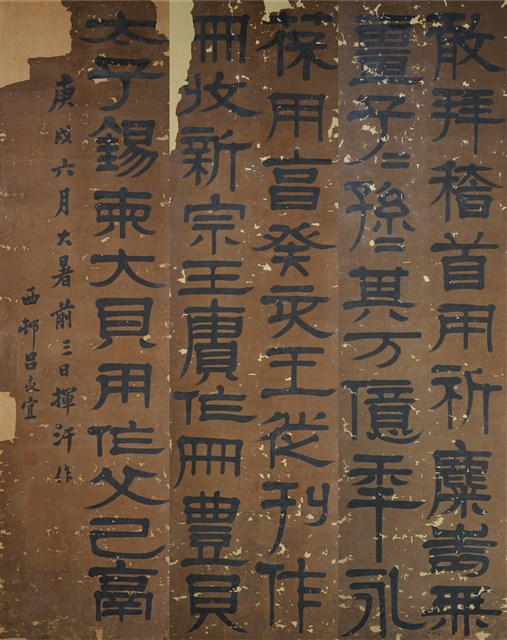 敢拜稽首用祈麋壽無
畺子二孫二其万億年永
葆用亯癸亥王從刊作
冊收新宗王賡作冊豊貝
太子錫東大貝用作父己鬲
庚戌六月大暑前三日揮汗作
西邨呂世宜